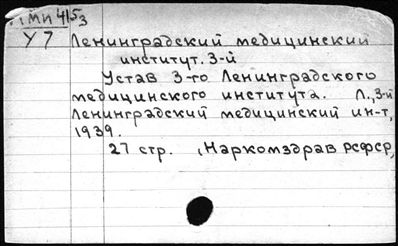 1МИ 4153
У7 Ленинградский медицинский
институт. 3-й
Устав 3-го Ленинградского
медицинского института. Л., 3-й
Ленинградский медицинский ин-т,
1939.
27 стр. (Наркомздрав РСФСР,